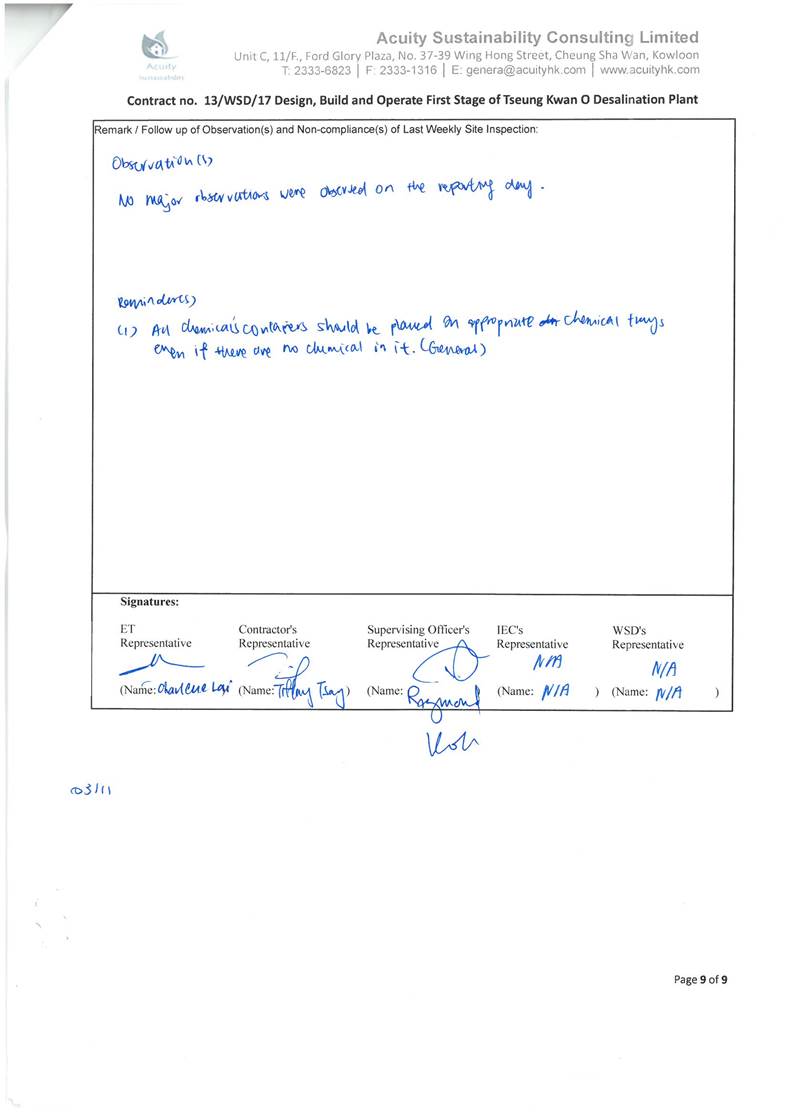 Acuity Sustainability Consulting Limited
Unit C, 11/F., Ford Glory Plaza, No. 37-39 Wing Hong Street, Cheung Sha Wan, Kowloon
T: 2333-6823 | F: 2333-1316 | E: genera@acuityhk.com | www.acuityhk.com
Acuity
Sustainability
Contract no. 13/WSD/17 Design, Build and Operate First Stage of Tseung Kwan O Desalination Plant
Remark / Follow up of Observation(s) and Non-compliance(s) of Last Weekly Site Inspection:
Observation(s)
No major observations were observed on the reporting day.
Reminder(s)
(1) All chemicals containers should be placed on appropriate chemical trays
even if there are no chemical in it. (General)
Signatures:
ET Contractor's Supervising Officer's IEC's WSD's
Representative Representative Representative Representative Representative
N/A N/A
(Name: Charlene Lai (Name: Tiffany Tsang) (Name: Raymond (Name: N/A ) (Name: N/A )
Koh
03/11
Page 9 of 9